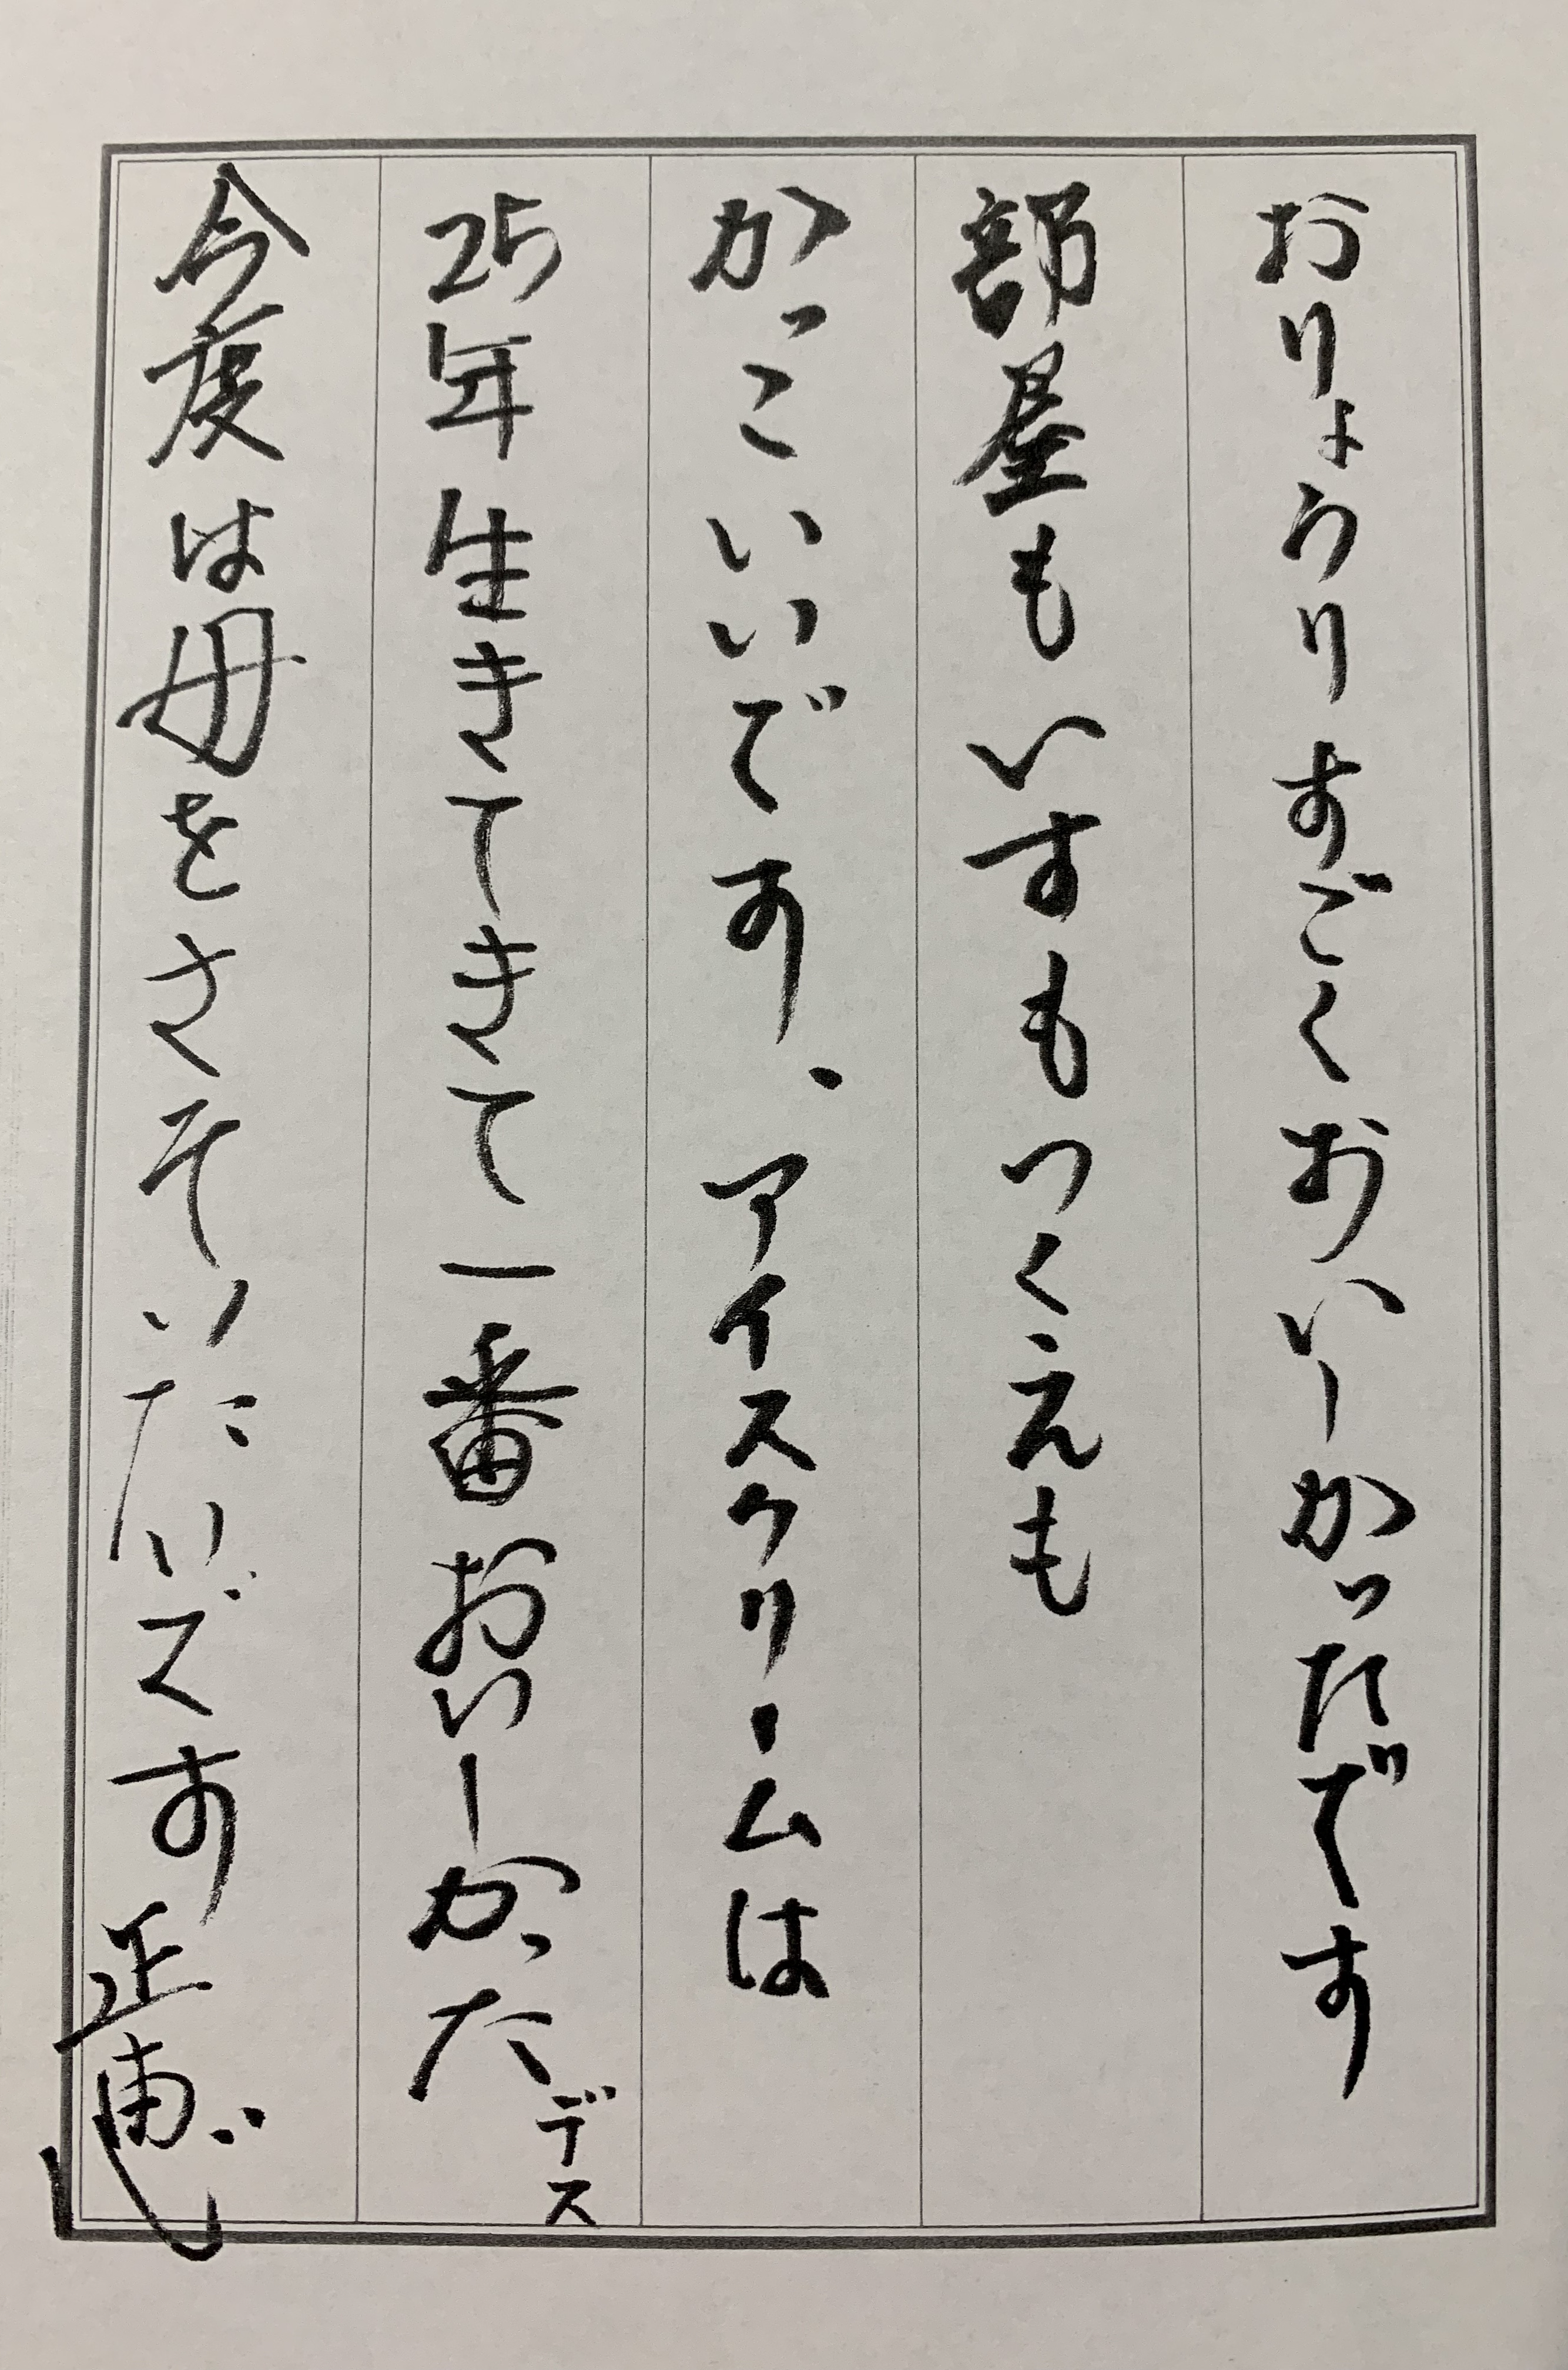 おりょうりすごくおいーかったです
部屋もいすもつくえも
かっこいいです、アイスクリームは
25年生きてきて一番おいーかったデス
今度は母をさそいたいです 正恵